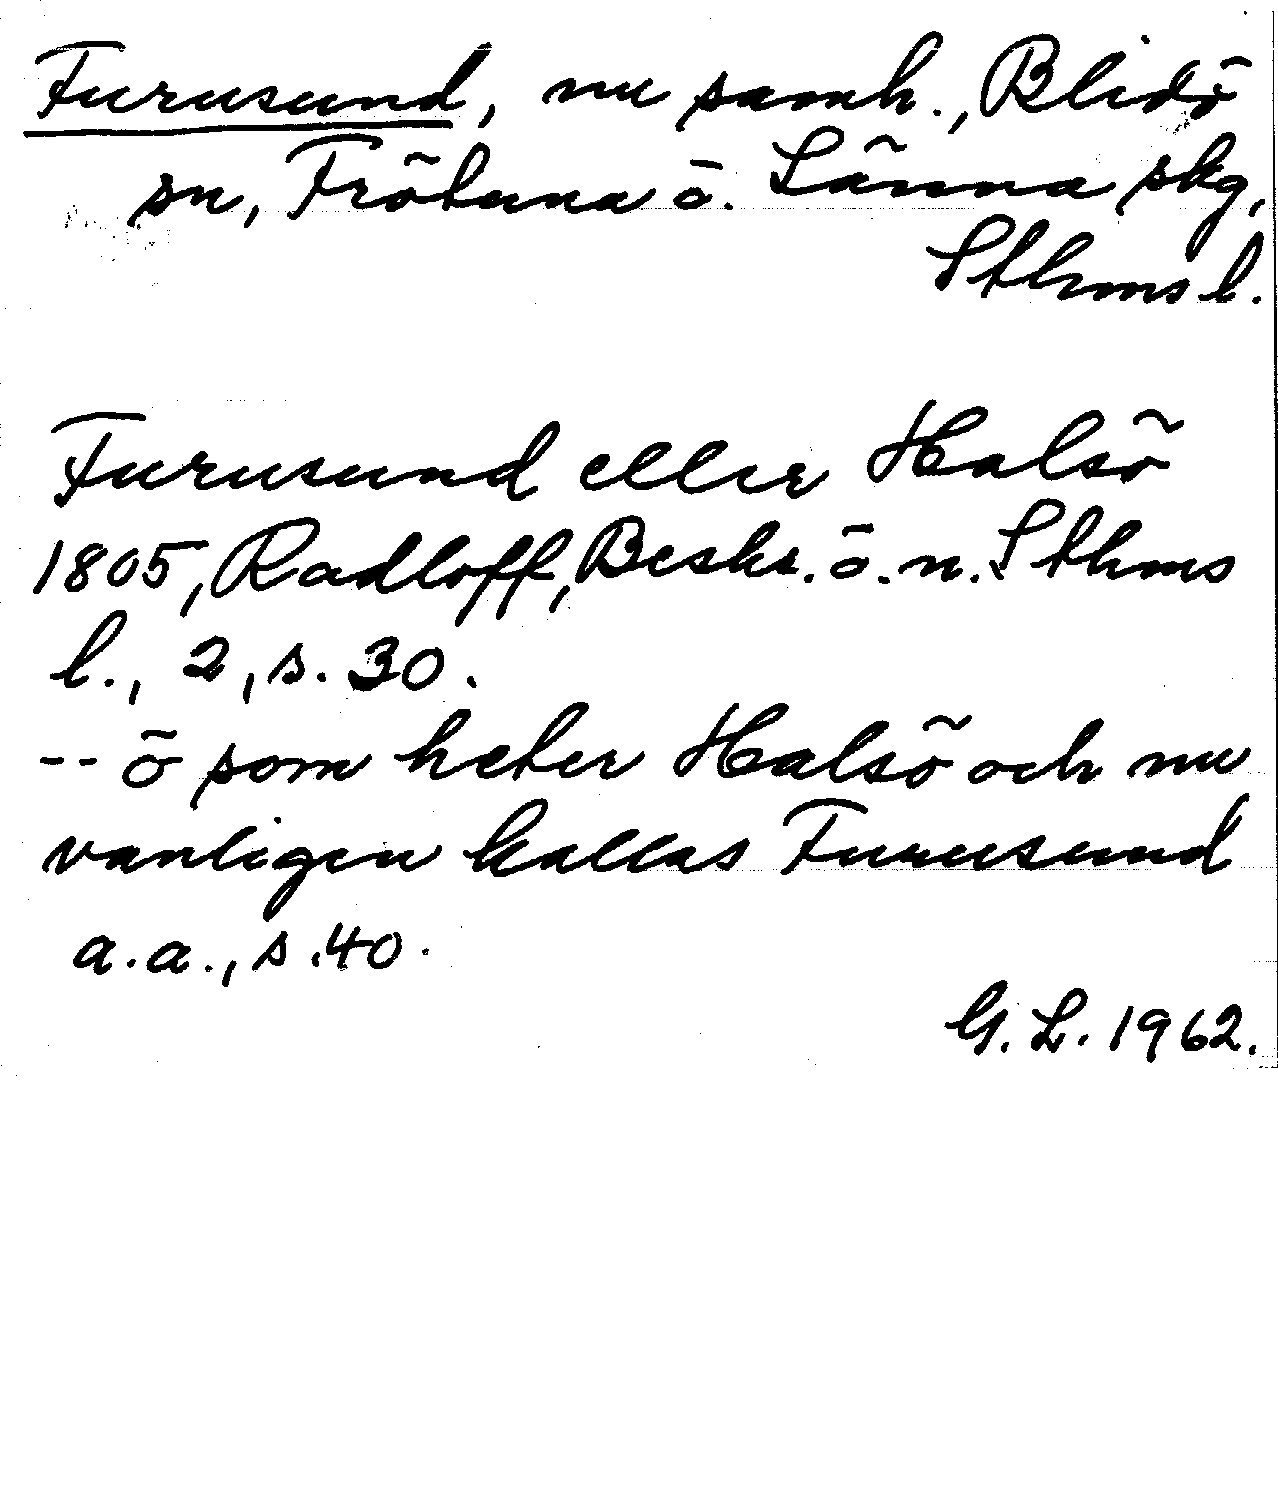 Furusund, nu samh., Blidö
sn, Frötuna o. Länna skg,
Sthms l.
Furusund eller Halsö
1805, Radloff, Beskr. ö. n. Sthms
l., 2, s. 30.
-- ö som heter Halsö och nu
vanligen kallas Furusund
a.a., s. 40.
G. L. 1962.